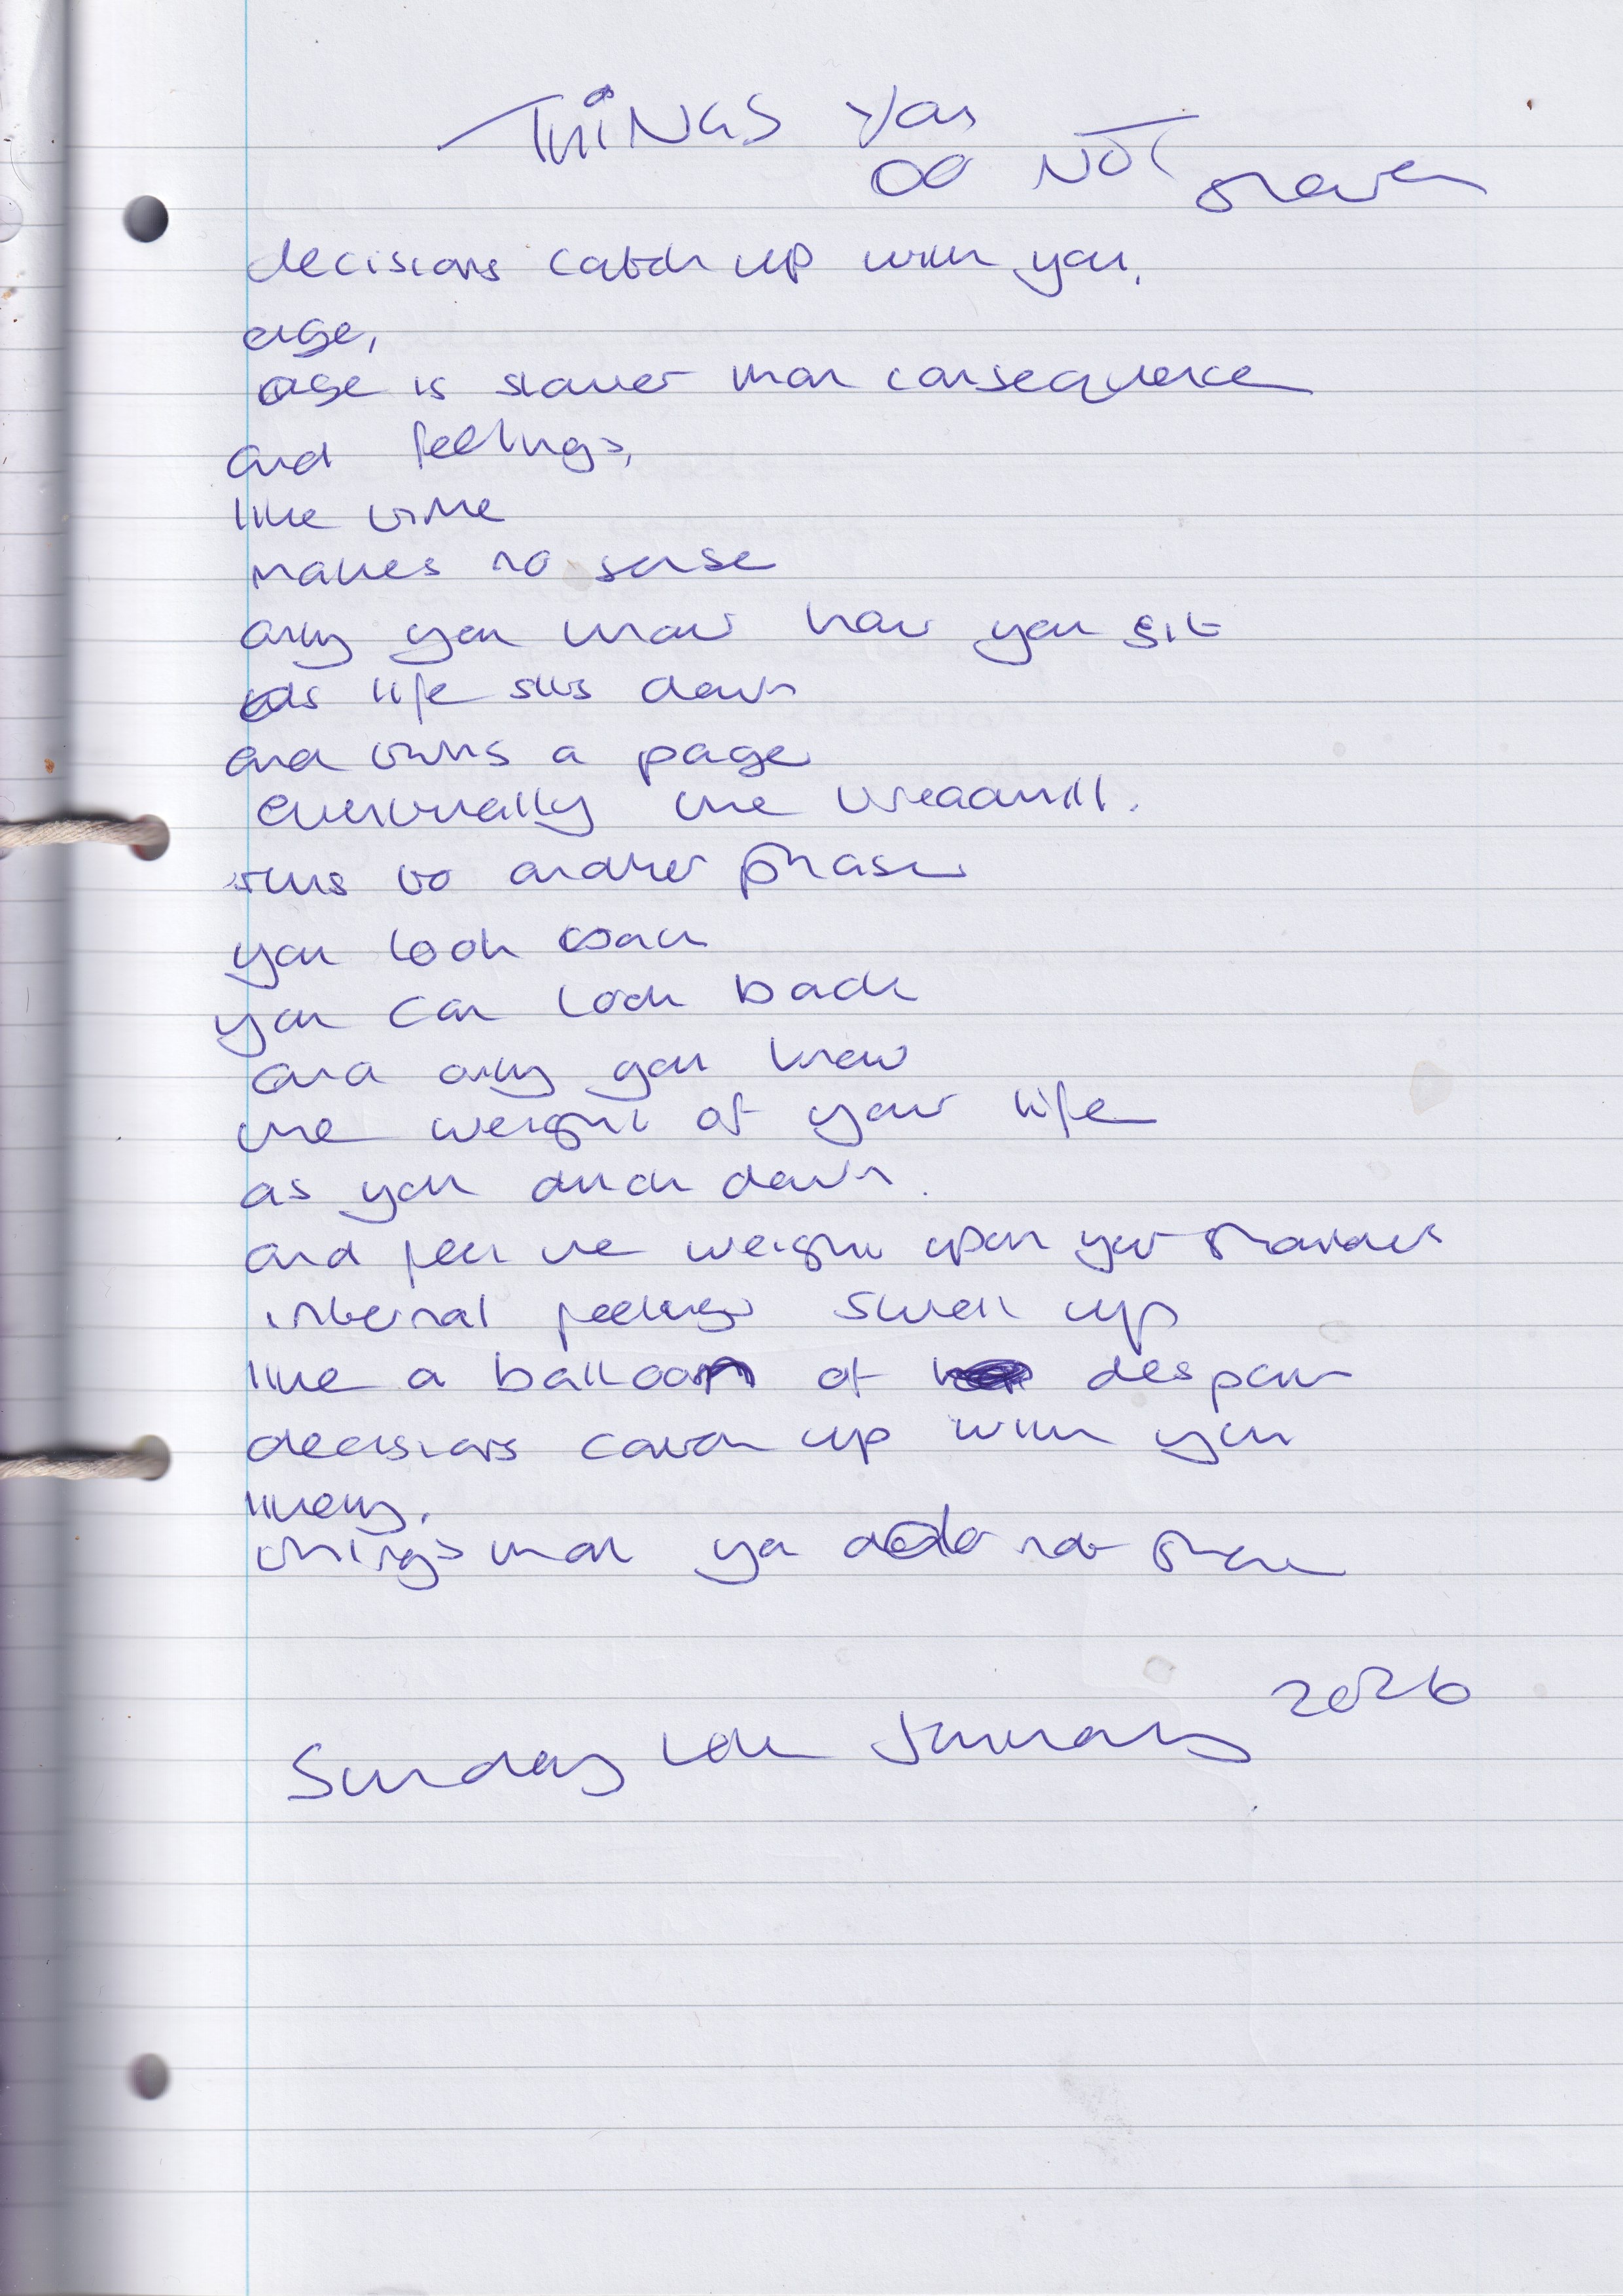 THINGS YOU
DO NOT share
decisions catch up with you,
age,
age is slower than consequence
and feelings,
like time
makes no sense
only you know how you sit
as life sits down
and turns a page
eventually the treadmill.
to another phase
you look back
you can look back
and only you know
the weight of your life
as you down.
and feel the weight upon your shoulders
internal feelings swell up
like a balloon of despair
decisions catch up with you
likely.
things that you do not share
Sunday January 2026